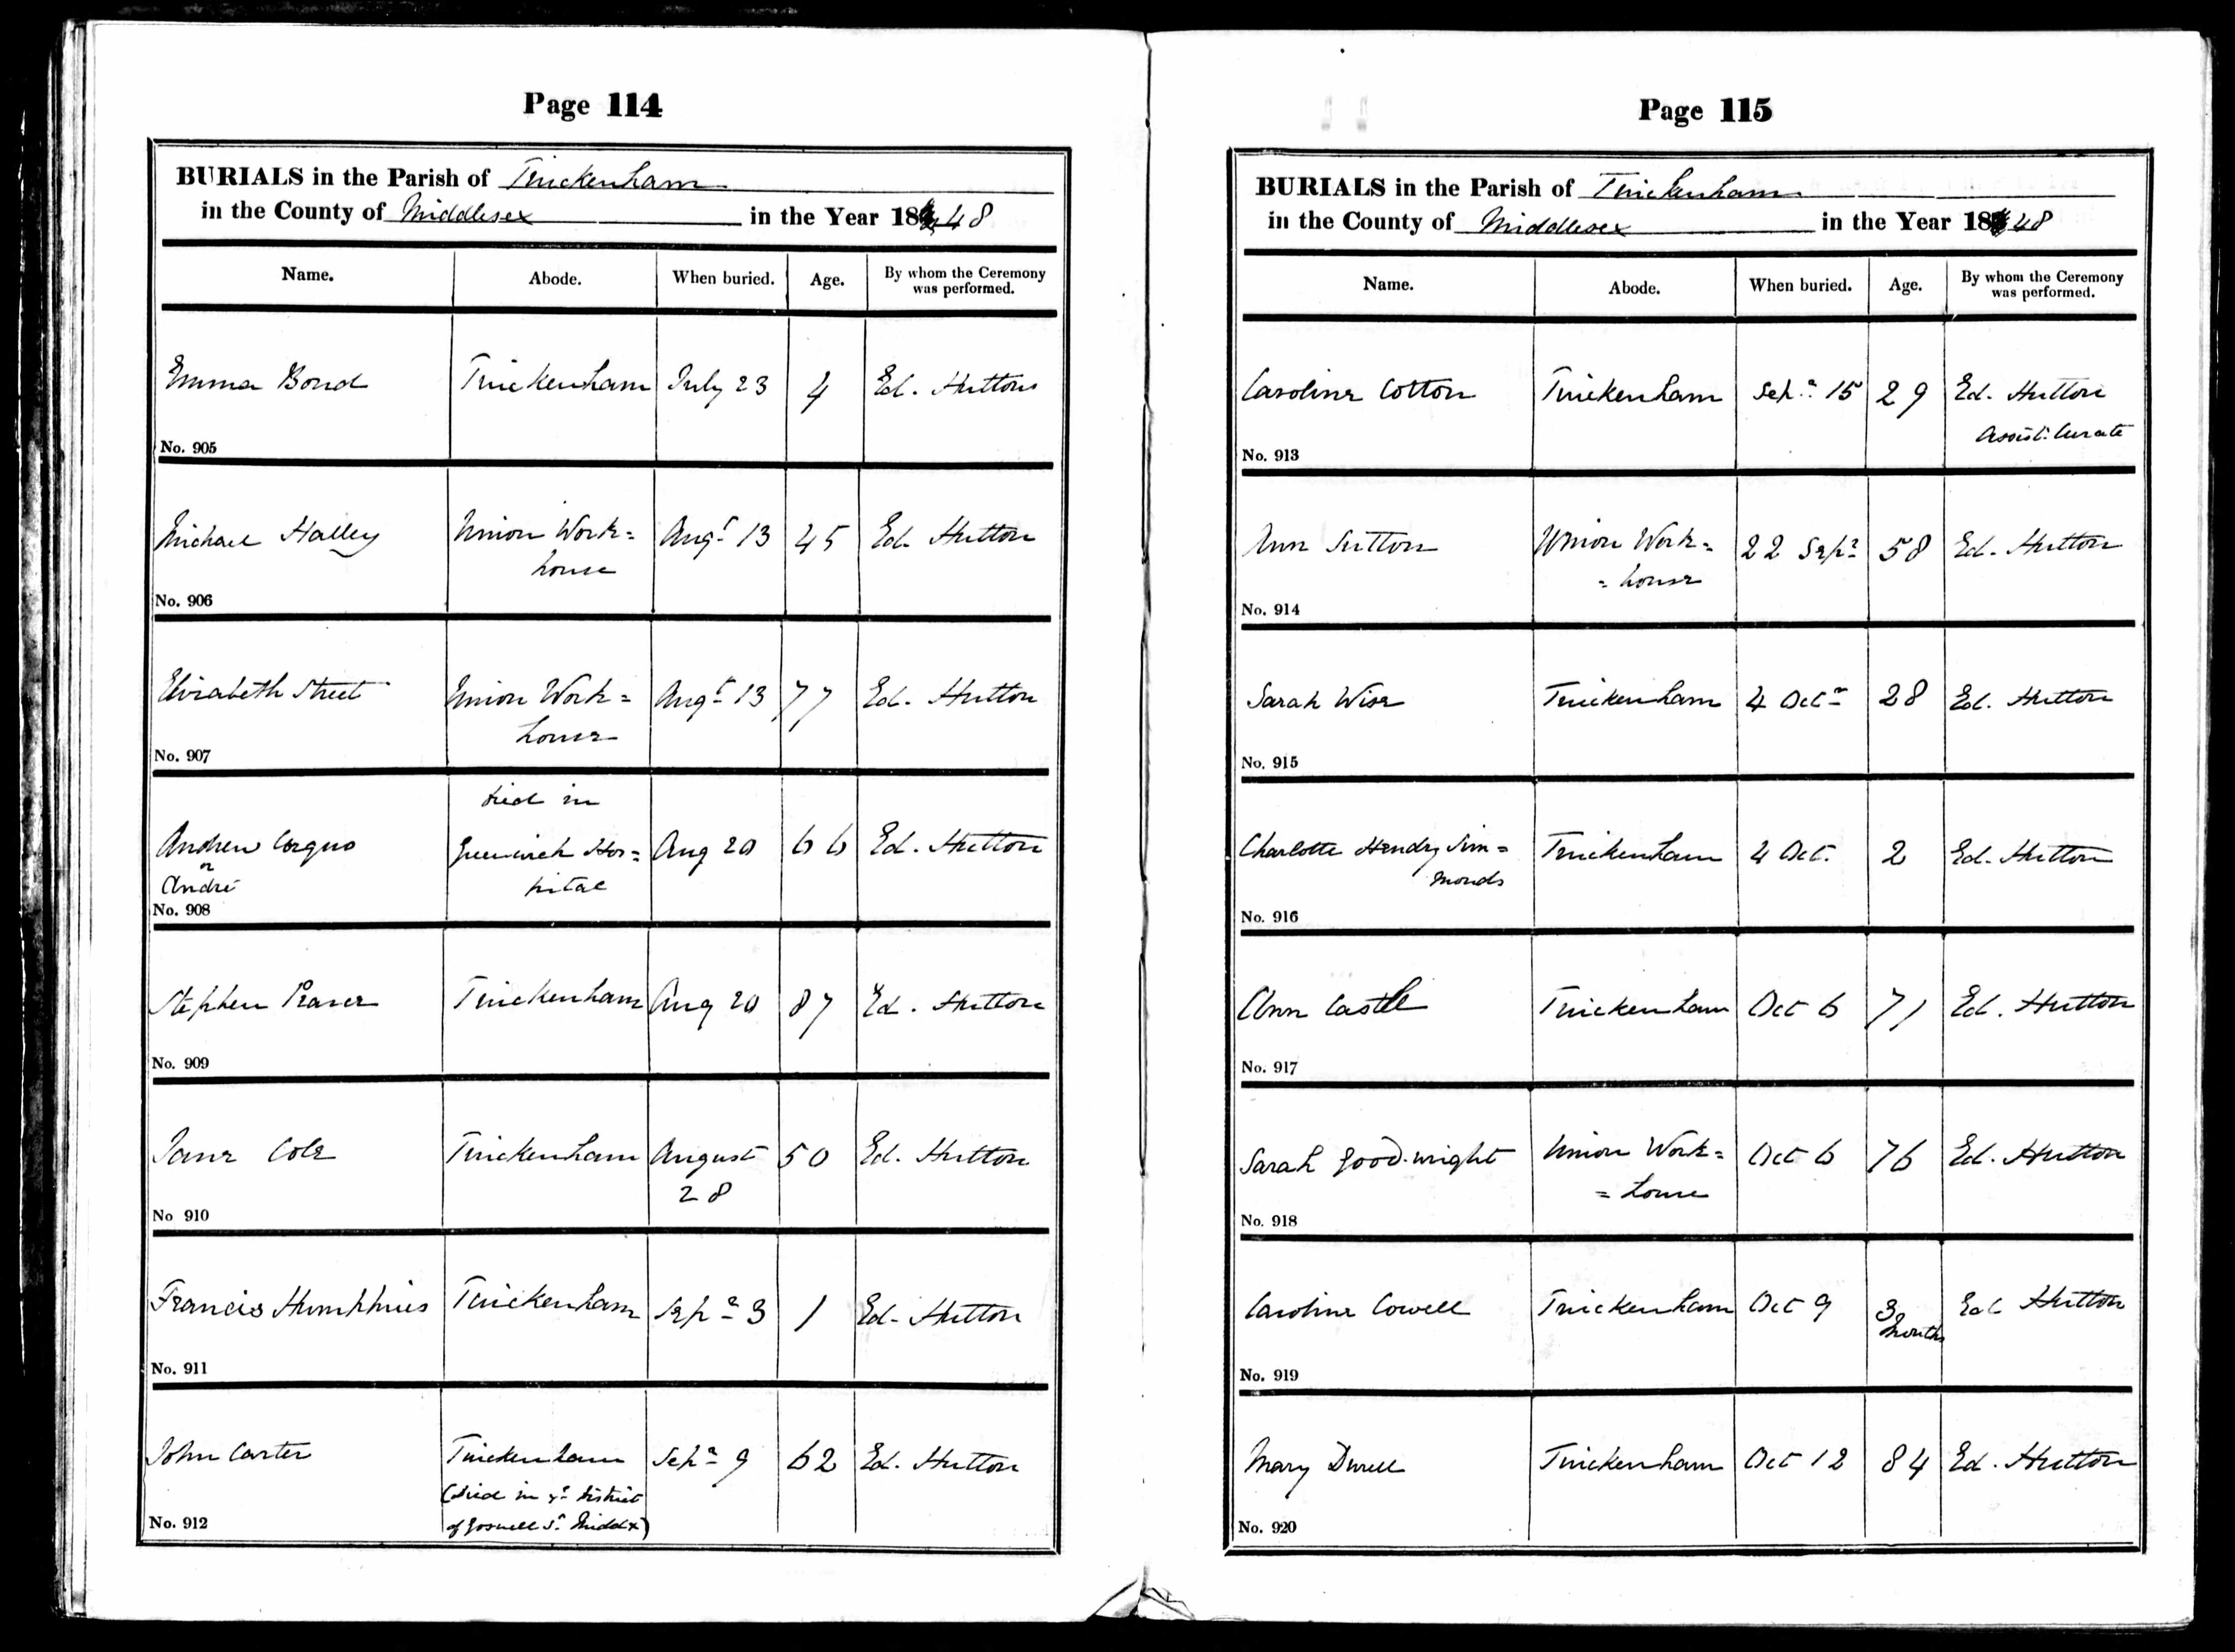 Page 114
BURIALS in the Parish of Twickenham
in the County of Middlesex in the Year 1848
Name. Abode. When buried. Age. By whom the Ceremony was performed.
Emma Bond Twickenham July 23 4 Ed. Hutton
No. 905
Michael Halley Union Work= Augt 13 45 Ed. Hutton
house
No. 906
Elizabeth Street Union Work= Augt 13 77 Ed. Hutton
house
No. 907
died in
Andrew Corguo Greenwich Hos= Aug 20 66 Ed. Hutton
or
André pital
No. 908
Stephen Twickenham Aug 20 87 Ed. Hutton
No. 909
Jane Cole Twickenham August 50 Ed. Hutton
28
No 910
Francis Humphries Twickenham Sepr 3 1 Ed. Hutton
No. 911
John Carter Twickenham Sepr 9 62 Ed. Hutton
(died in ye district
No. 912 of Goswell St Middx)
Page 115
BURIALS in the Parish of Twickenham
in the County of Middlesex in the Year 1848
Name. Abode. When buried. Age. By whom the Ceremony was performed.
Caroline Cotton Twickenham Sepr 15 29 Ed. Hutton
Assist: Curate
No. 913
Ann Sutton Union Work= 22 Sepr 58 Ed. Hutton
=house
No. 914
Sarah Wise Twickenham 4 Octr 28 Ed. Hutton
No. 915
Charlotte Hendry Sim= Twickenham 4 Oct. 2 Ed. Hutton
monds
No. 916
Ann Castle Twickenham Oct 6 71 Ed. Hutton
No. 917
Sarah Good-wright Union Work= Oct 6 76 Ed. Hutton
=house
No. 918
Caroline Cowell Twickenham Oct 9 3 Ed Hutton
Months
No. 919
Mary Twickenham Oct 12 84 Ed. Hutton
No. 920